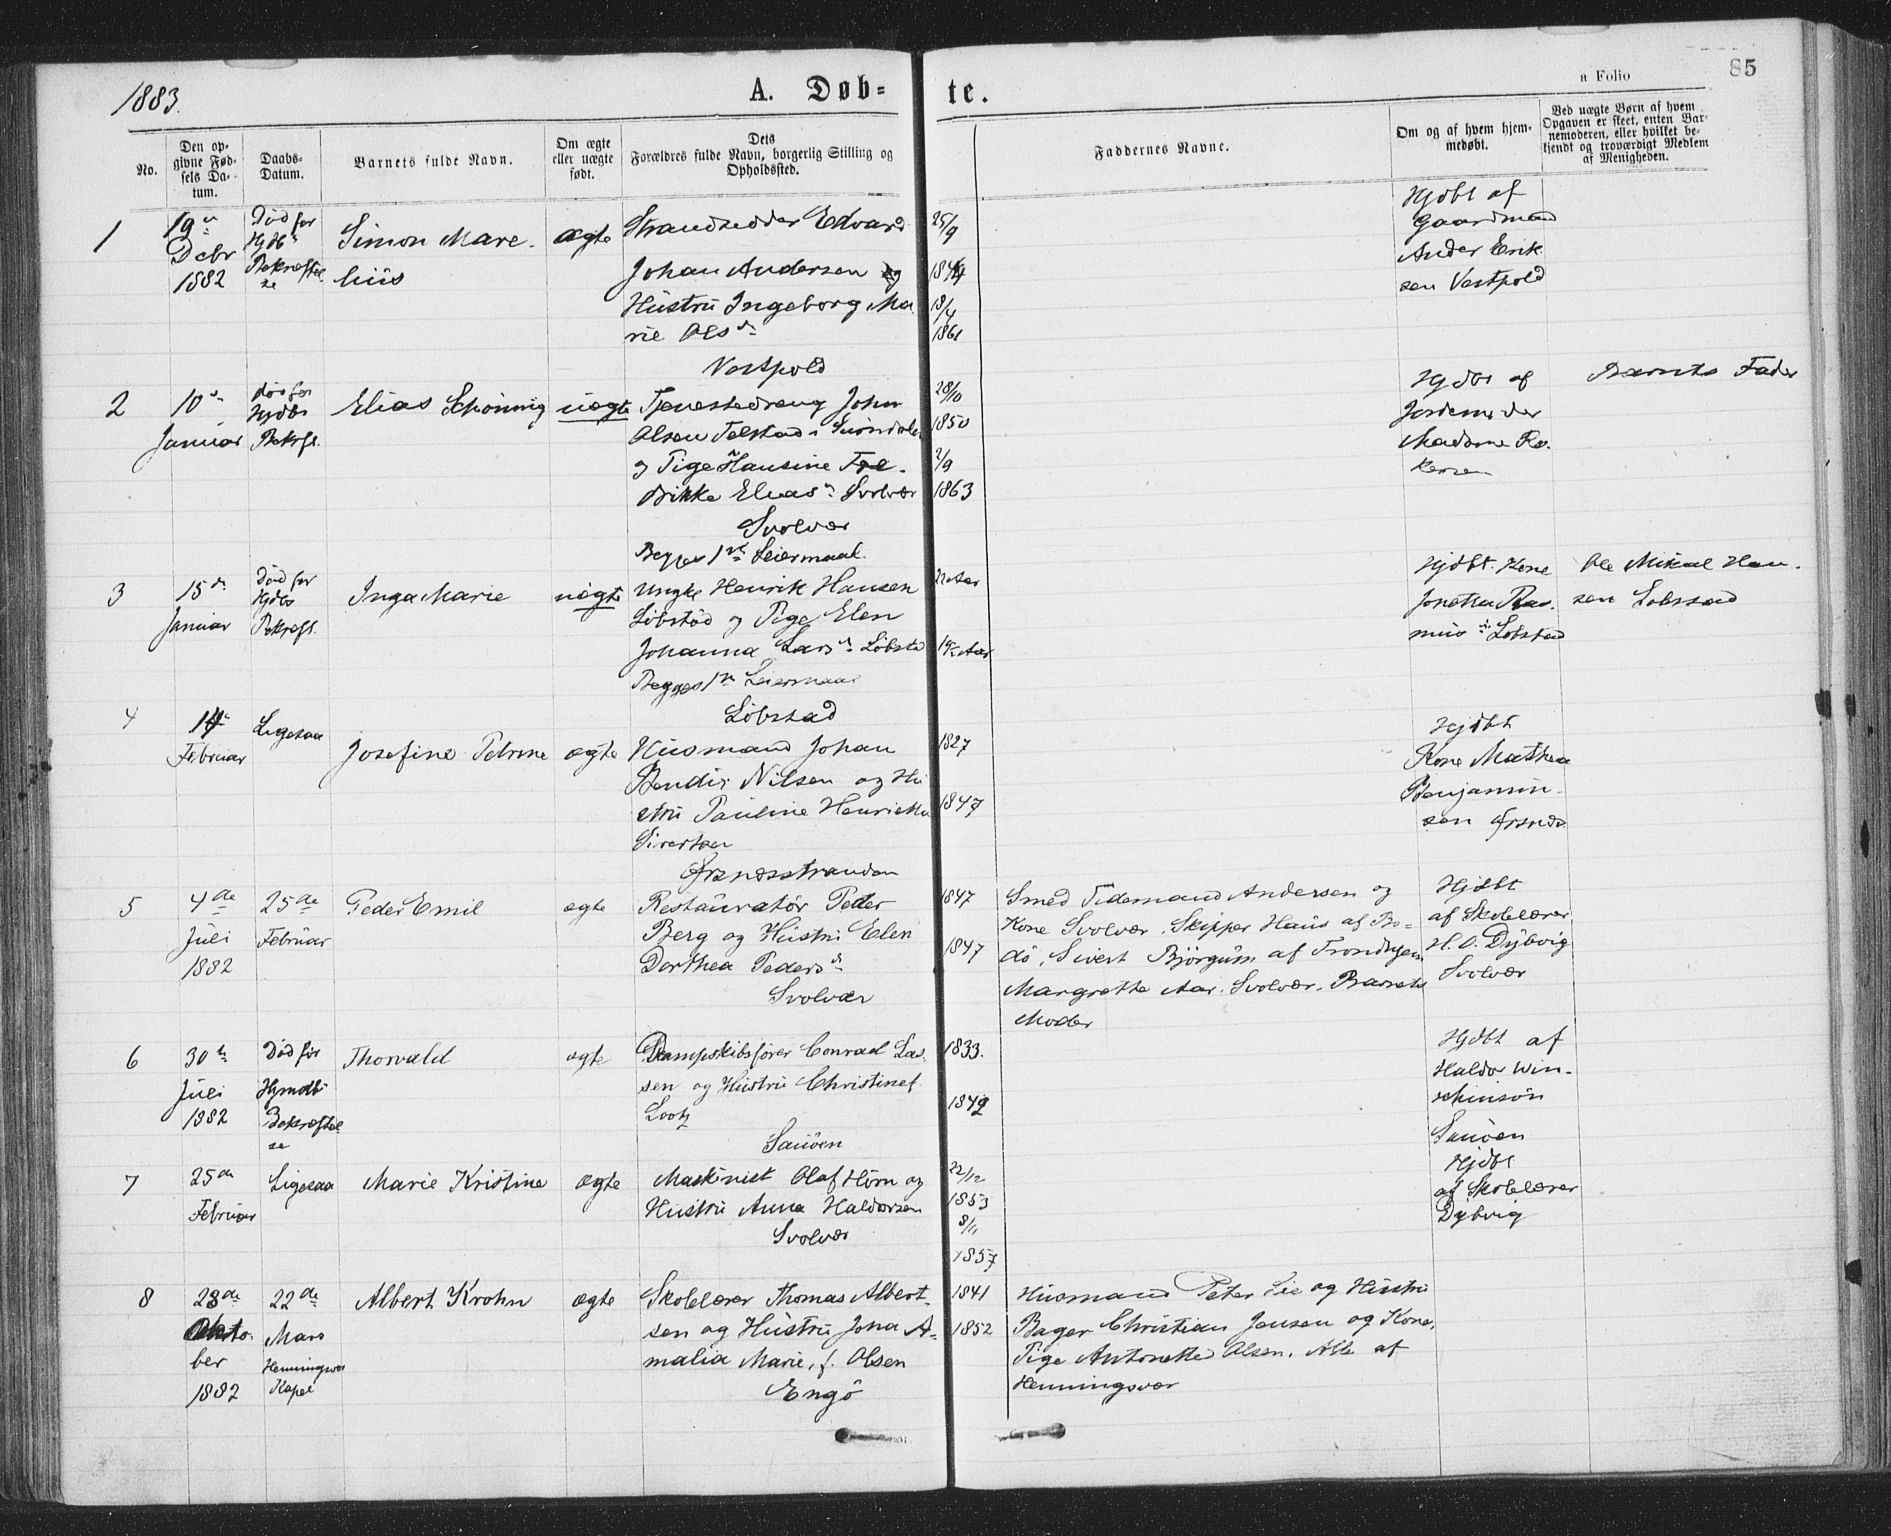 1883.
A. Døb-
te.
a Folio
85
No.
Den op-
givne Fød-
sels Da-
tum.
Daabs-
Datum.
Barnets fulde Navn.
Om ægte
eller uægte
født.
Dets
Forældres fulde Navn, borgerlig Stilling og
Opholdssted.
Faddernes Navne.
Om og af hvem hjem-
medøbt.
Ved uægte Børn af hvem
Opgaven er skeet, enten Bar-
nemoderen, eller hvilket be-
kjendt og troværdigt Medlem
af Menigheden.
1
19
Debr
1882
Død før
Hjdbs
Bekræftel
se
Simon Mare-
liús
ægte
Strandsidder Edvard
Johan Andersen og
Hústrú Ingeborg Ma
rie Ols
Vestpold
25/9
1844
18/4
1861
Hjdbt af
Gaardmand
Ander Erik
sen Vestpold
2
10
Janúar
død før
Hjdbs
Bekræft.
Elias Schönnig
úægte
Tjenestedreng John
Olsen Telstad i Súrndalen
og Pige Hansine Fre-
drikke Elias Svolvær
Svolvær
Begges 1ste Leiermaal
28/10
1850
2/9
1863
Hjdbt af
Jordemoder
Madame
Barnets Fader
3
15de
Janúar
Død før
Hjdbs
Bekræft.
Inga Marie
úægte
Ungk Henrik Hansen
Löbstød og Pige Elen
Johanna Lars Löbstd
Begges 1ste Leiermaal
Löbstad
22 Aar
19½ Aar
Hjdbt. Kone
Jonetha Ras
mús Löbstad
Ole Mikal Han-
sen Löbstad
4
14
Febrúar
Ligesaa
Josefine Petrine
ægte
Húsmand Johan
Bendix Nilsen og Hú
strú Paúline Henrietta
Sivertsen
Örsnæsstranden
1827
1847
Hjdbt
Kone Mathea
Benjamin-
sen Örsnds
5
4de
Júli
1882
25de
Febrúar
Peder Emil
ægte
Restaúratør Peder
Berg og Hústrú Elen
Dorthea Peders
Svolvær
1847
1847
Smed Tidemand Andersen og
Kone Svolvær. Skipper Haús af Bo-
dö, Sivert Björgúm af Trondhjem
Margrethe Aar. Svolvær. Barnets
Moder
Hjdbt
af Skolelærer
H. O. Dÿbvig
Svolvær
6
30te
Júli
1882
Død før
Hjmdb
Bekræftel
se
Thorvald
ægte
Dampskibsfører Conrad Las-
sen og Hústrú Christine f.
Lootz
Saúöen
1833.
1849
Hjdbt af
Haldor Win-
Saúöen
7
25de
Febrúar
Ligesaa
Marie Kristine
ægte
Maskinist Olaf Hörn og
Hústrú Anna Haldorsen
Svolvær
22/12
1853
8/11
1857
Hjdbt
af Skolelærer
Dÿbvig
8
28de
Okto-
ber
1882
22de
Mars
Henningsvær
Kapel
Albert Krohn
ægte
Skolelærer Thomas Albert-
sen og Hústrú Jona A-
malia Marie, f. Olsen
Engö
1841
1852
Húsmand Peter Lie og Hústrú
Bager Christian Jensen og Kone,
Pige Antonette Olsen. Alle af
Henningsvær